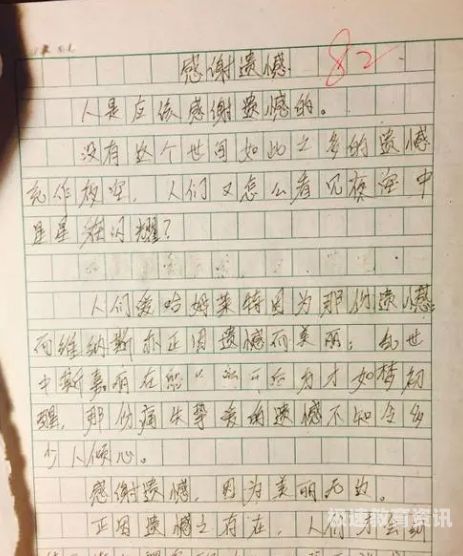 感谢遗憾 82
人是应该感谢遗憾的。
没有这个世间如此之多的遗憾
充作夜空，人们又怎么看见夜空中
星星在闪耀？
人们爱哈姆莱特因为那份遗憾；
而维纳斯亦正因遗憾而美丽；乱世
中斯嘉丽在
才如梦初
醒，那份痛失挚爱的遗憾不知令多
少人倾心。
感谢遗憾，因为美丽无边。
正因遗憾之存在，人们才会
极速教育资讯